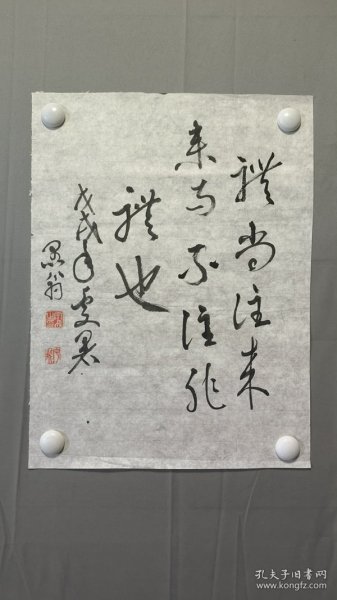 禮尚往来
来而不往非
禮也
戊戌年處暑
翁
孔夫子旧书网
www.kongfz.com